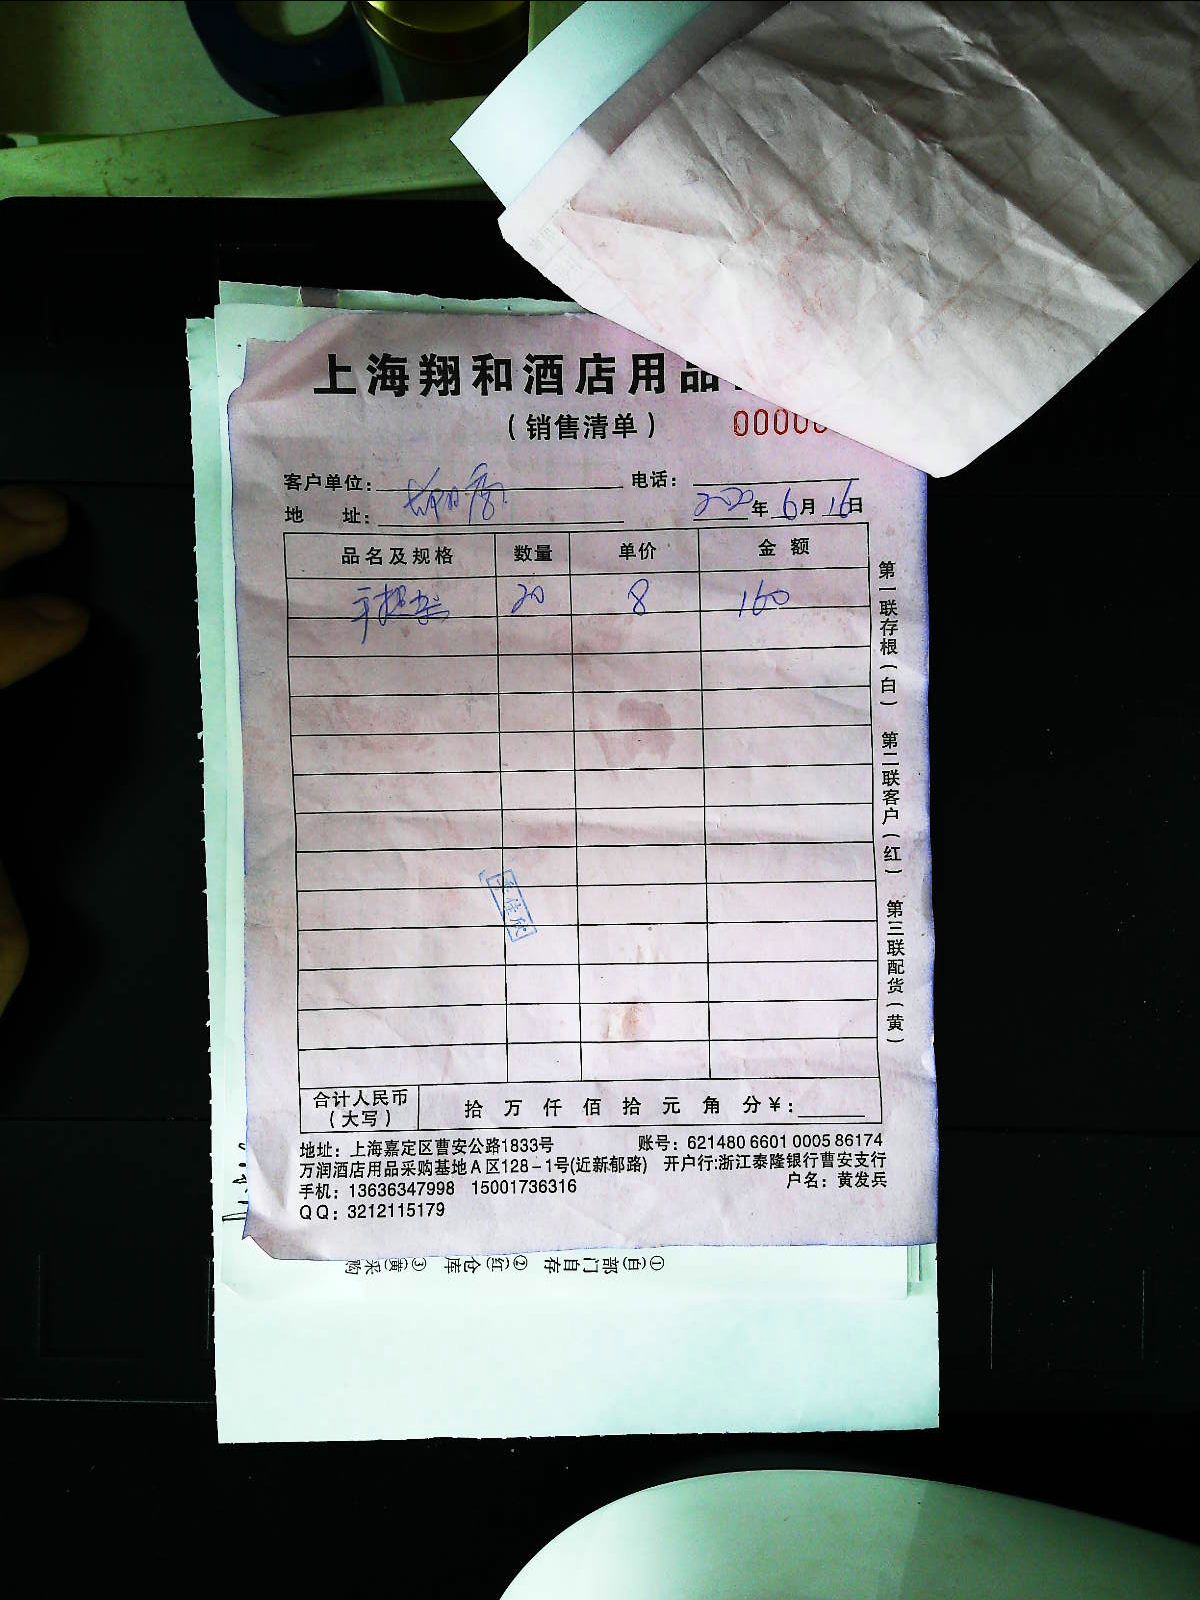 上海翔和酒店用品
（销售清单）
00000
客户单位： 电话：
地 址： 2020年6月16日
品名及规格 数量 单价 金额
手提袋 20 8 160
第一联存根（白） 第二联客户（红） 第三联配货（黄）
合计人民币（大写） 拾 万 仟 佰 拾 元 角 分￥：
地址：上海嘉定区曹安公路1833号 账号：621480 6601 0005 86174
万润酒店用品采购基地A区128-1号(近新郁路) 开户行:浙江泰隆银行曹安支行
手机：13636347998 15001736316 户名：黄发兵
QQ：3212115179
①(白)部门自存 ②(红)仓库 ③(黄)采购